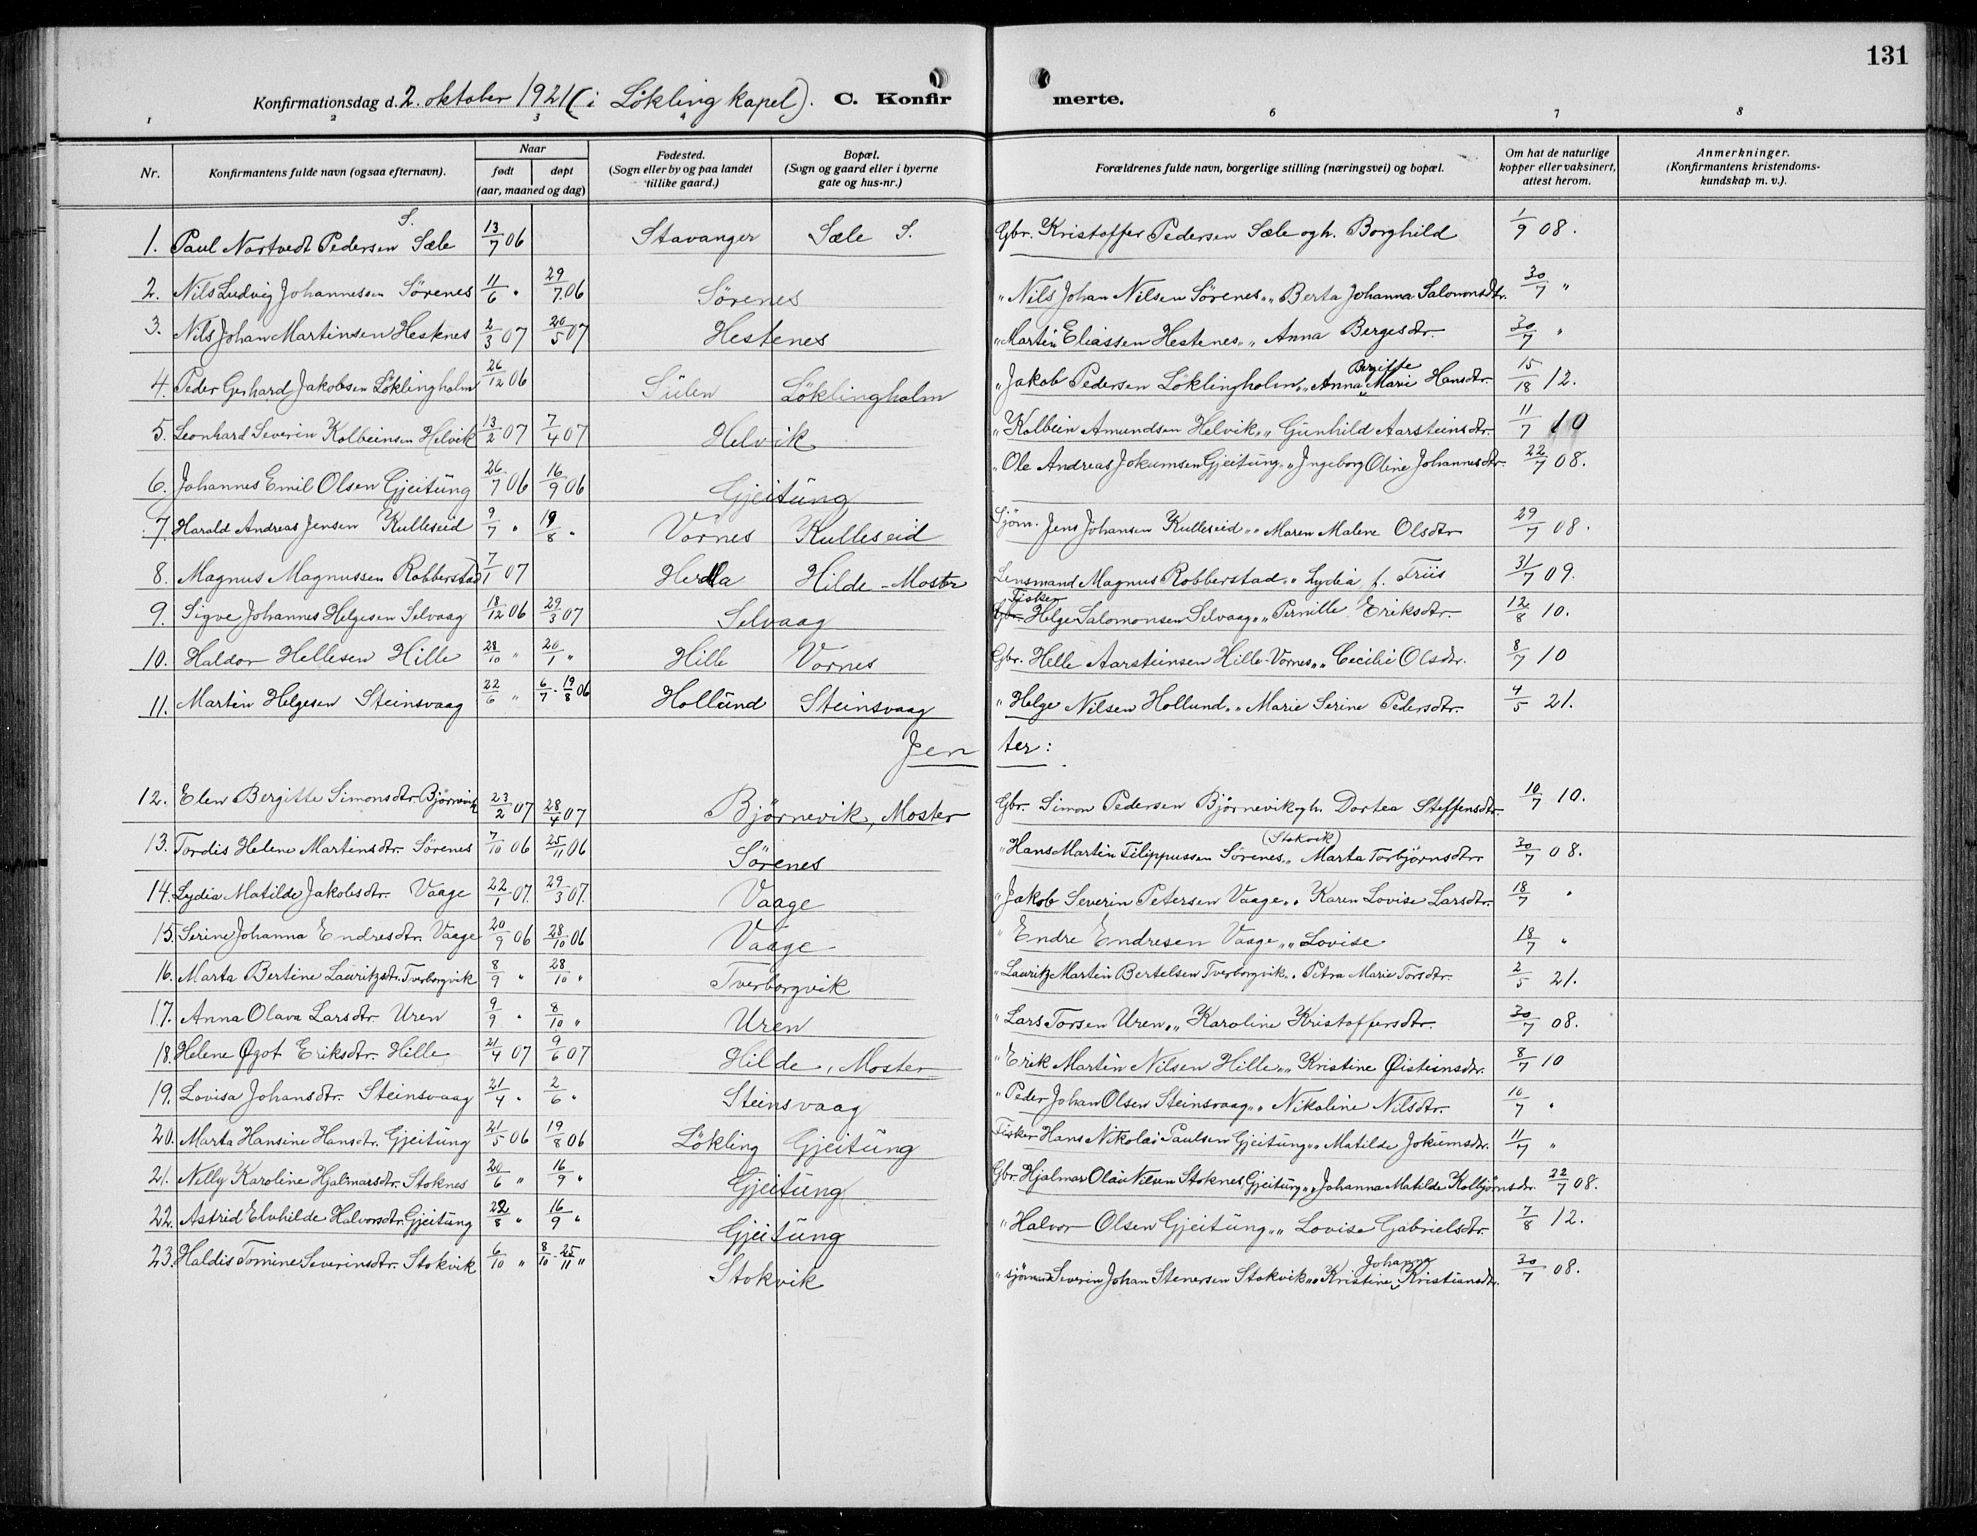 131
Konfirmationsdag d. 2. oktober 1921 (i Lökling kapel). C. Konfirmerte.
1 2 3 4 6 7 8
Nr. Konfirmantens fulde navn (ogsaa efternavn). Naar født døpt (aar, maaned og dag) Fødested. (Sogn eller by og paa landet tillike gaard.) Bopæl. (Sogn og gaard eller i byerne gate og hus-nr.) Forældrenes fulde navn, borgerlige stilling (næringsvei) og bopæl. Om hat de naturlige kopper eller vaksinert, attest herom. Anmerkninger. (Konfirmantens kristendoms-kundskap m. v.).
1. Paul Nortvedt Pedersen S. Sæle 13/7 06 Stavanger Sæle S. Gbr. Kristoffer Pedersen Sæle og h. Borghild 1/9 08.
2. Nils Ludvig Johannessen Sörenes 11/6 " 29/7 06 Sörenes " Nils Johan Nilsen Sörenes " " Berta Johanna Salomonsdtr. 30/7 "
3. Nils Johan Martinsen Hestenes 2/3 07 20/5 07 Hestenes " Martin Eliassen Hestenes " " Anna Bergesdtr. 30/7 "
4. Peder Gerhard Jakobsen Löklingholm 26/12 06 Sülen Löklingholm " Jakob Pedersen Löklingholm " " Anna Bergitte Marie Hansdtr. 15/18 12.
5. Leonhard Severin Kolbeinsen Helvik 13/2 07 7/4 07 Helvik " Kolbein Amundsen Helvik " " Gunhild Aarsteinsdtr. 11/7 10
6. Johannes Emil Olsen Gjeitung 26/7 06 16/9 06 Gjeitung " Ole Andreas Jokumsen Gjeitung " " Ingeborg Oline Johannesdtr. 22/7 08.
7. Harald Andreas Jensen Kulleseid 9/7 " 19/8 " Vornes Kulleseid Sjöm. Jens Johansen Kulleseid " " Maren Malene Olsdtr 29/7 08.
8. Magnus Magnussen Robberstad 7/1 07 Herdla Hilde - Moster Lensmand Magnus Robberstad " " Lydia f. Friis 31/7 09.
9. Sigve Johannes Helgesen Selvaag 18/12 06 29/3 07 Selvaag Fisker Helge Salomonsen Selvaag " " Pernille Eriksdtr. 12/8 10.
10. Haldor Hellesen Hille 28/10 " 20/1 " Hille Vornes Gbr. Helle Aarsteinsen Hille-Vornes " " Cecilie Olsdtr. 8/7 10
11. Martin Helgesen Steinsvaag 22/6 " 6/7 - 19/8 06 Hollund Steinsvaag " Helge Nilsen Hollund " " Marie Serine Pedersdtr. 4/5 21.
Jenter:
12. Elen Bergitte Simonsdtr. Björnevik 23/2 07 28/4 07 Björnevik, Moster Gbr. Simon Pedersen Björnevik og h. Dortea Steffensdtr. 10/7 10.
13. Tordis Helene Martinsdtr. Sörenes 7/10 06 25/11 06 Sörenes " Hans Martin Filippussen Sörenes " " (Stokvik) Marta Torbjörnsdtr. 30/7 08.
14. Lydia Matilde Jakobsdtr. Vaage 22/1 07. 29/3 07. Vaage " Jakob Severin Petersen Vaage " " Karen Lovise Larsdtr. 18/7 "
15. Serine Johanna Endresdtr. Vaage 20/9 06 28/10 06 Vaage " Endre Endresen Vaage " " Lovise 18/7 "
16. Marta Bertine Lauritzdtr. Tverborgvik 8/9 " 28/10 " Tverborgvik " Lauritz Martin Bertelsen Tverborgvik " " Petra Marie Torsdtr. 2/5 21.
17. Anna Olava Larsdtr. Uren 9/9 " 8/10 " Uren " Lars Torsen Uren " " Karoline Kristoffersdtr. 30/7 08.
18. Helene Ågot Eriksdtr. Hille 21/4 07 9/6 07 Hilde, Moster " Erik Martin Nilsen Hille " " Kristine Øisteinsdtr. 8/7 10
19. Lovisa Johansdtr. Steinsvaag 21/4 " 2/6 " Steinsvaag " Peder Johan Olsen Steinsvaag " " Nikoline Nilsdtr. 10/7 "
20. Marta Hansine Hansdtr. Gjeitung 21/5 06 19/8 06 Lökling Gjeitung Fisker Hans Nikolai Paulsen Gjeitung " " Matilde Jokumsdtr. 11/7 "
21. Nelly Karoline Hjalmarsdtr. Stoknes 20/6 " 16/9 " Gjeitung Gbr. Hjalmar Olai Nilsen Stoknes, Gjeitung " " Johanna Matilde Kolbjörnsdtr. 22/7 08.
22. Astrid Elvhilde Halvorsdtr. Gjeitung 22/8 " 16/9 " Gjeitung " Halvor Olsen Gjeitung " " Lovise Gabrielsdtr. 7/8 12.
23. Haldis Tomine Severinsdtr. Stokvik 6/10 " 8/10 - 25/11 " Stokvik " sjömand Severin Johan Stenersen Stokvik " " Kristine Johanna Kristiansdtr. 30/7 08.